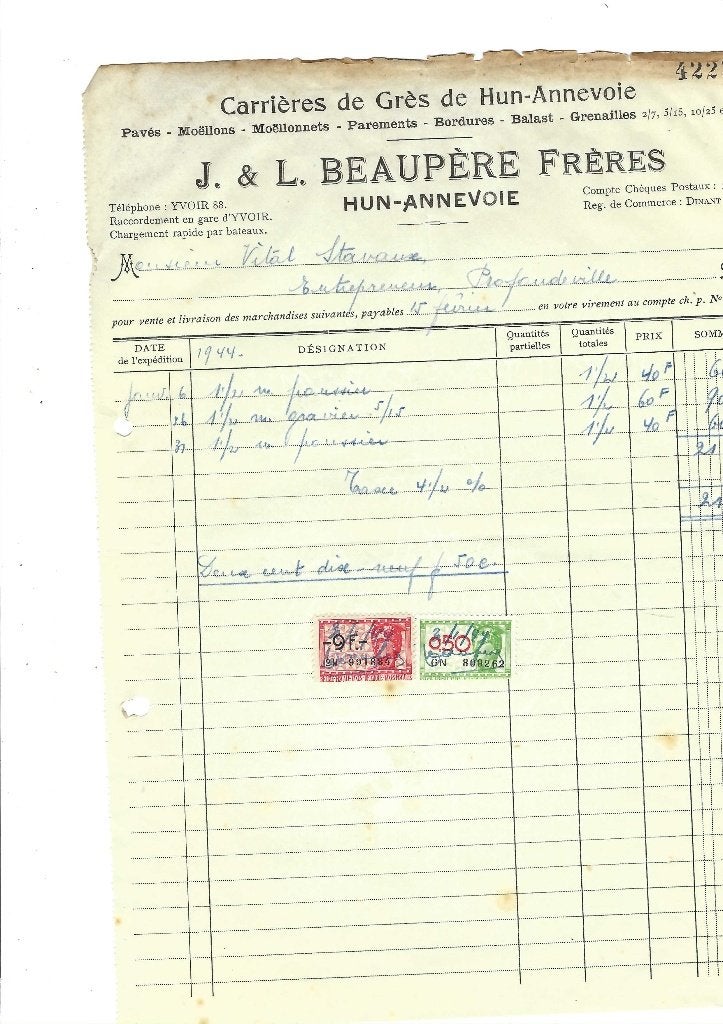 4227
Carrières de Grès de Hun-Annevoie
Pavés - Moëllons - Moëllonnets - Parements - Bordures - Balast - Grenailles 2/7, 5/15, 10/25 e
J. & L. BEAUPÈRE FRÈRES
HUN-ANNEVOIE
Téléphone : YVOIR 88.
Raccordement en gare d'YVOIR.
Chargement rapide par bateaux.
Compte Chèques Postaux :
Reg. de Commerce : DINANT
Monsieur Vital Stavaux
Entrepreneur Profondeville
pour vente et livraison des marchandises suivantes, payables 15 février en votre virement au compte ch. p. N°
DATE de l'expédition 1944. DÉSIGNATION Quantités partielles Quantités totales PRIX SOMM
Janvier 6 1 1/2 m poussier 1 1/2 40 F 60
26 1 1/2 m gravier 5/15 1 1/2 60 F 90
31 1 1/2 m poussier 1 1/2 40 F 60
21
Taxe 4 1/2 %
21
Deux cent dix-neuf f 50 c.
-9F.- 050
GN GN 808262